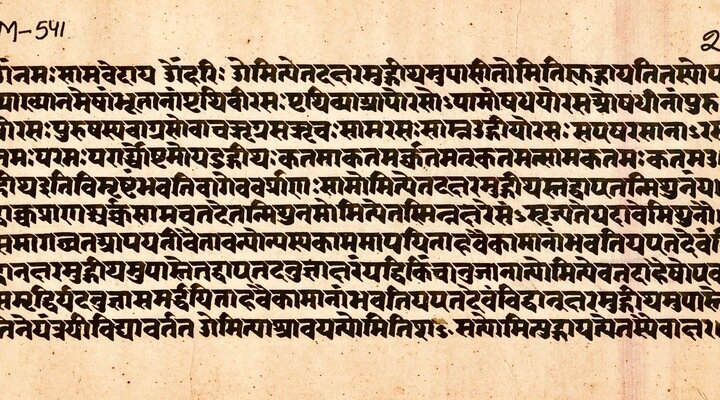 M-541
2
नमः सामवेदाय ॐ हरिः ॐमित्येतदक्षरमुद्गीथमुपासीतोमितिह्युद्गायतितस्योप
व्याख्यानमेषांभूतानांपृथिवीरसः पृथिव्याआपोरसोऽपामोषधयोरसओषधीनांपुरु
रसः पुरुषस्यवाग्रसोवाचऋग्रसऋचः सामरसः साम्नउद्गीथोरसः सएषरसानाꣳर
तमः परमः परार्द्ध्योष्टमोयउद्गीथः कतमाकतमर्क्कतमत्कतमत्सामकतमः कतमउ
द्गीथइतिविमृष्टंभवतिवागेवर्क्प्राणः सामोमित्येतदक्षरमुद्गीथस्तद्वाएतन्मिथुनंय
द्वाक्चप्राणश्चर्क्चसामचतदेतन्मिथुनमोमित्येतस्मिन्नक्षरेसꣳसृज्यतेयदावैमिथुनौ
समागच्छतआपयतोवैतावन्योन्यस्यकाममापयिताहवैकामानांभवतियएतदेवंवि
द्वानक्षरमुद्गीथमुपास्तेतद्वाएतदनुज्ञाक्षरंयद्धिकिंचानुजानात्योमित्येवतदाहैषोएव
समृद्धिर्यदनुज्ञासमर्द्धयिताहवैकामानांभवतियएतदेवंविद्वानक्षरमुद्गीथमुपास्ते
तेनेयंत्रयीविद्यावर्तत ॐमित्याश्रावयत्योमितिशꣳसत्योमित्युद्गायत्येतस्यैवाक्षर